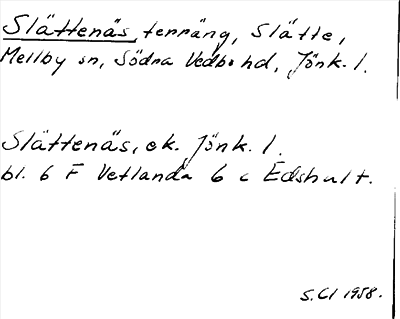 Slättenäs, terräng, Slätte,
Mellby sn, Södra Vedbo hd, Jönk. l.
Slättenäs, ek. Jönk. l.
bl. 6 F Vetlanda 6 c Edshult.
S. Cl 1958.